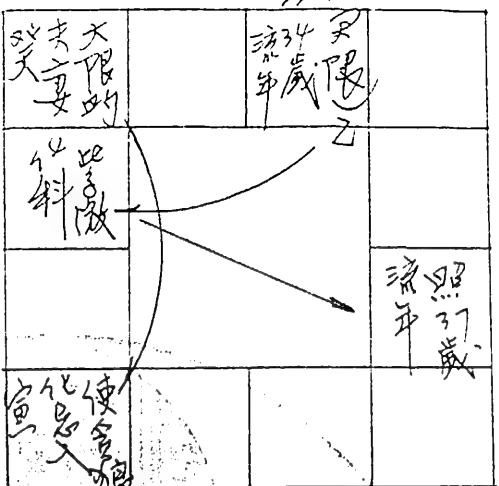 大限的
夫妻
癸
限乙
34歲
流年
紫微
化科
照37歲
流年
使貪狼
化忌入